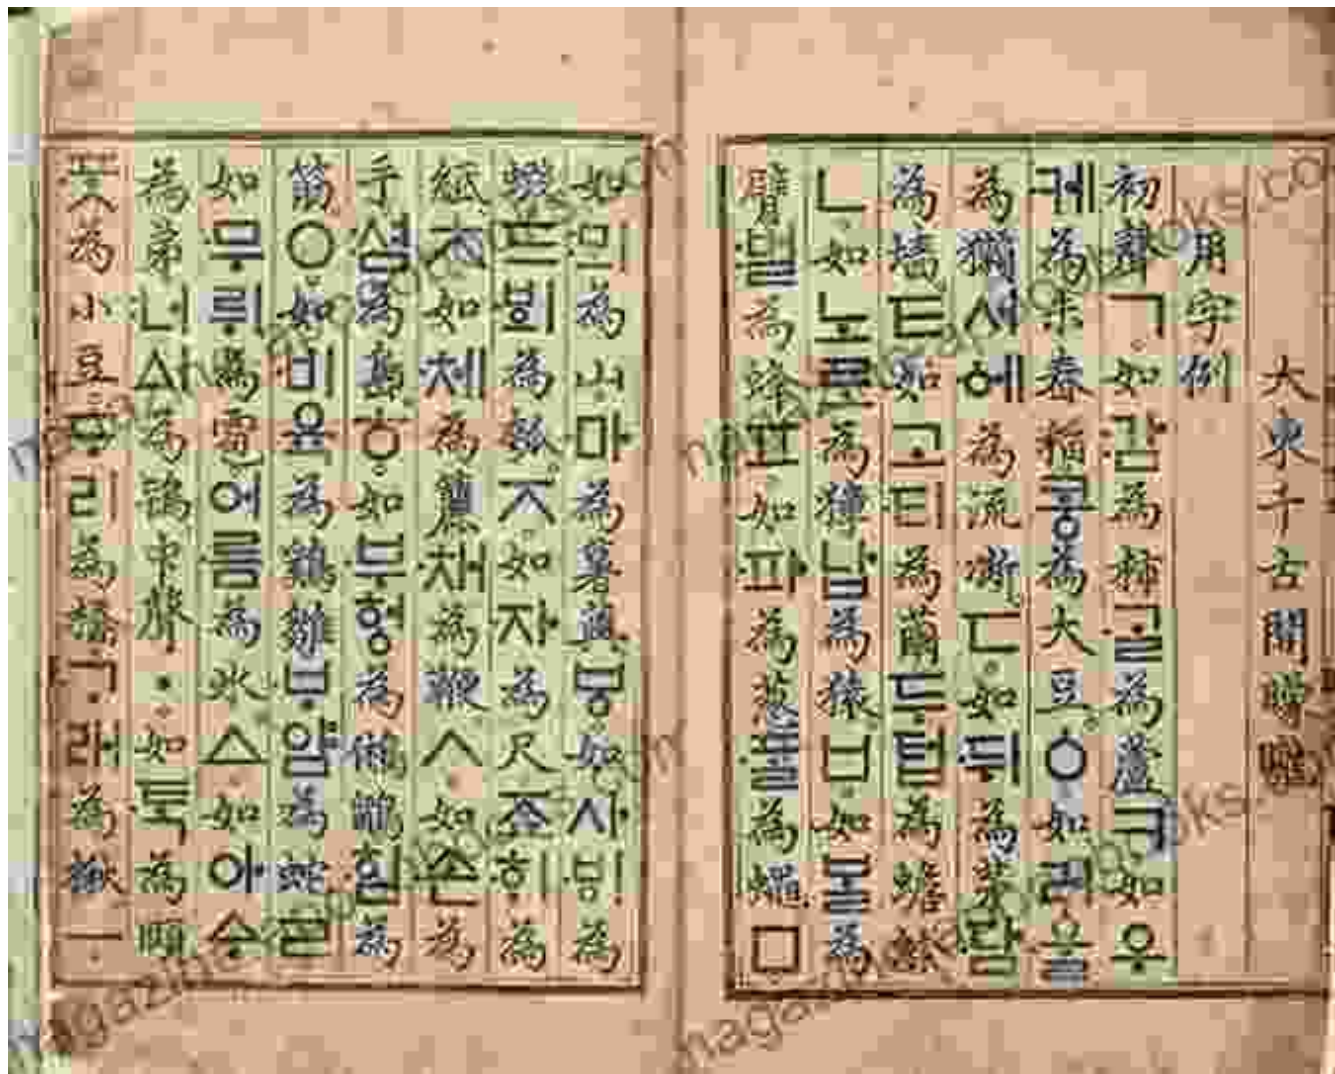 大東千古開矇矓
用字例
初聲ㄱ。如감為柿ᄀᆞᆯ為蘆ㅋ如우
케為未舂稻콩為大豆。ㆁ如러울
為獺서ᅌᅦ為流凘ㄷ。如뒤為茅담
為墻ㅌ如고티為繭두텁為蟾蜍
ㄴ如노로為獐납為猿ㅂ如ᄇᆞᆯ為
臂벌為蜂ㅍ如파為葱ᄑᆞᆯ為蠅ㅁ
如뫼為山마為薯藇ㅸ如사ᄫᅵ為
蝦드ᄫᅴ為瓠。ㅈ如자為尺죠ᄒᆡ為
紙ㅊ如체為籭채為鞭ㅅ。如손為
手셤為島ㅎ。如부헝為鵂鶹힘為
筋ㅇ。如비육為鷄雛ᄇᆞ얌為蛇ㄹ
如무뤼為雹어름為氷ㅿ。如아ᅀᆞ
為弟너ᅀᅵ為鴇中聲ㆍ。如ᄐᆞᆨ為頤
ᄑᆞᆺ為小豆ᄃᆞ리為橋ᄀᆞ래為楸ㅡ